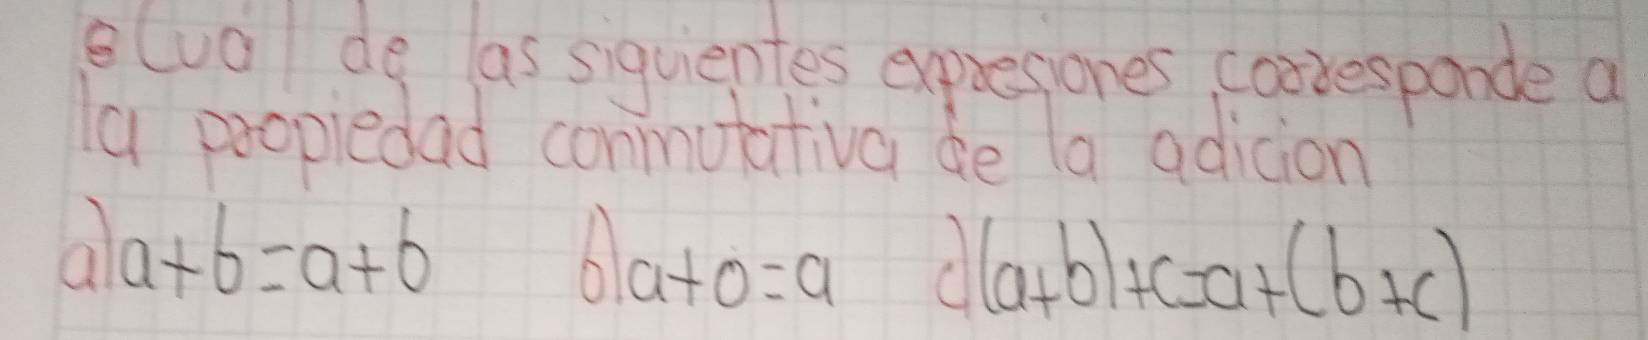 ¿Cual de las siguientes expresiones corresponde a
la propiedad conmutativa de la adicion
a) a+b=a+b b) a+0=a c) (a+b)+c=a+(b+c)